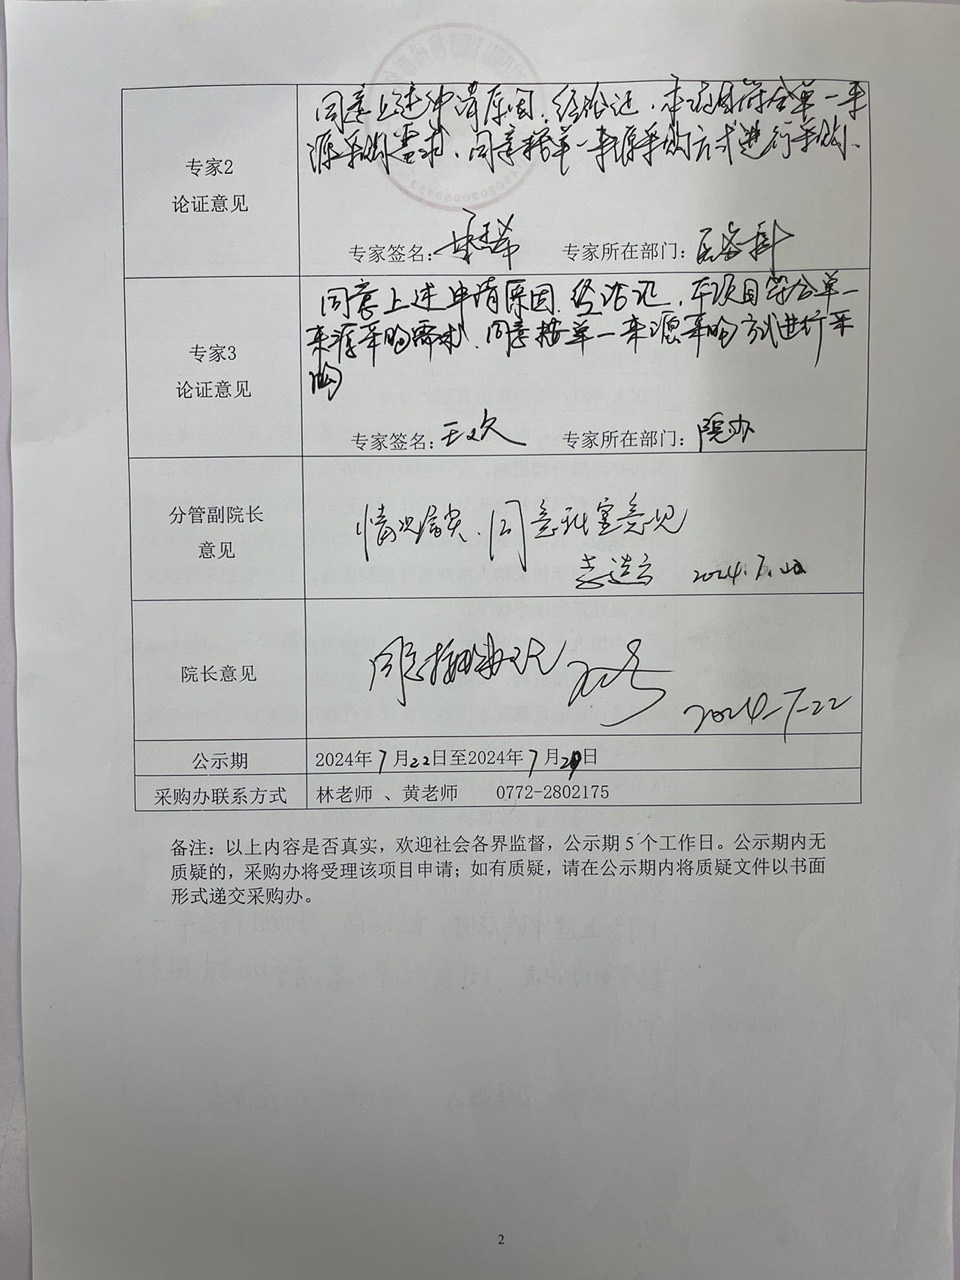 同意上述申请原因,经论证,本项目符合单一来
源采购需求,同意按单一来源采购方式进行采购。
专家2
论证意见
专家签名: 专家所在部门:
同意上述申请原因,经论证,本项目符合单一
来源采购需求,同意按单一来源采购方式进行采
购
专家3
论证意见
专家签名:王欢 专家所在部门:院办
分管副院长
意见
情况属实、同意科室意见
2024.7.22
院长意见
同意按
2024-7-22
公示期
2024年7月22日至2024年7月29日
采购办联系方式
林老师 、黄老师 0772-2802175
备注:以上内容是否真实,欢迎社会各界监督,公示期 5 个工作日。公示期内无
质疑的,采购办将受理该项目申请;如有质疑,请在公示期内将质疑文件以书面
形式递交采购办。
2